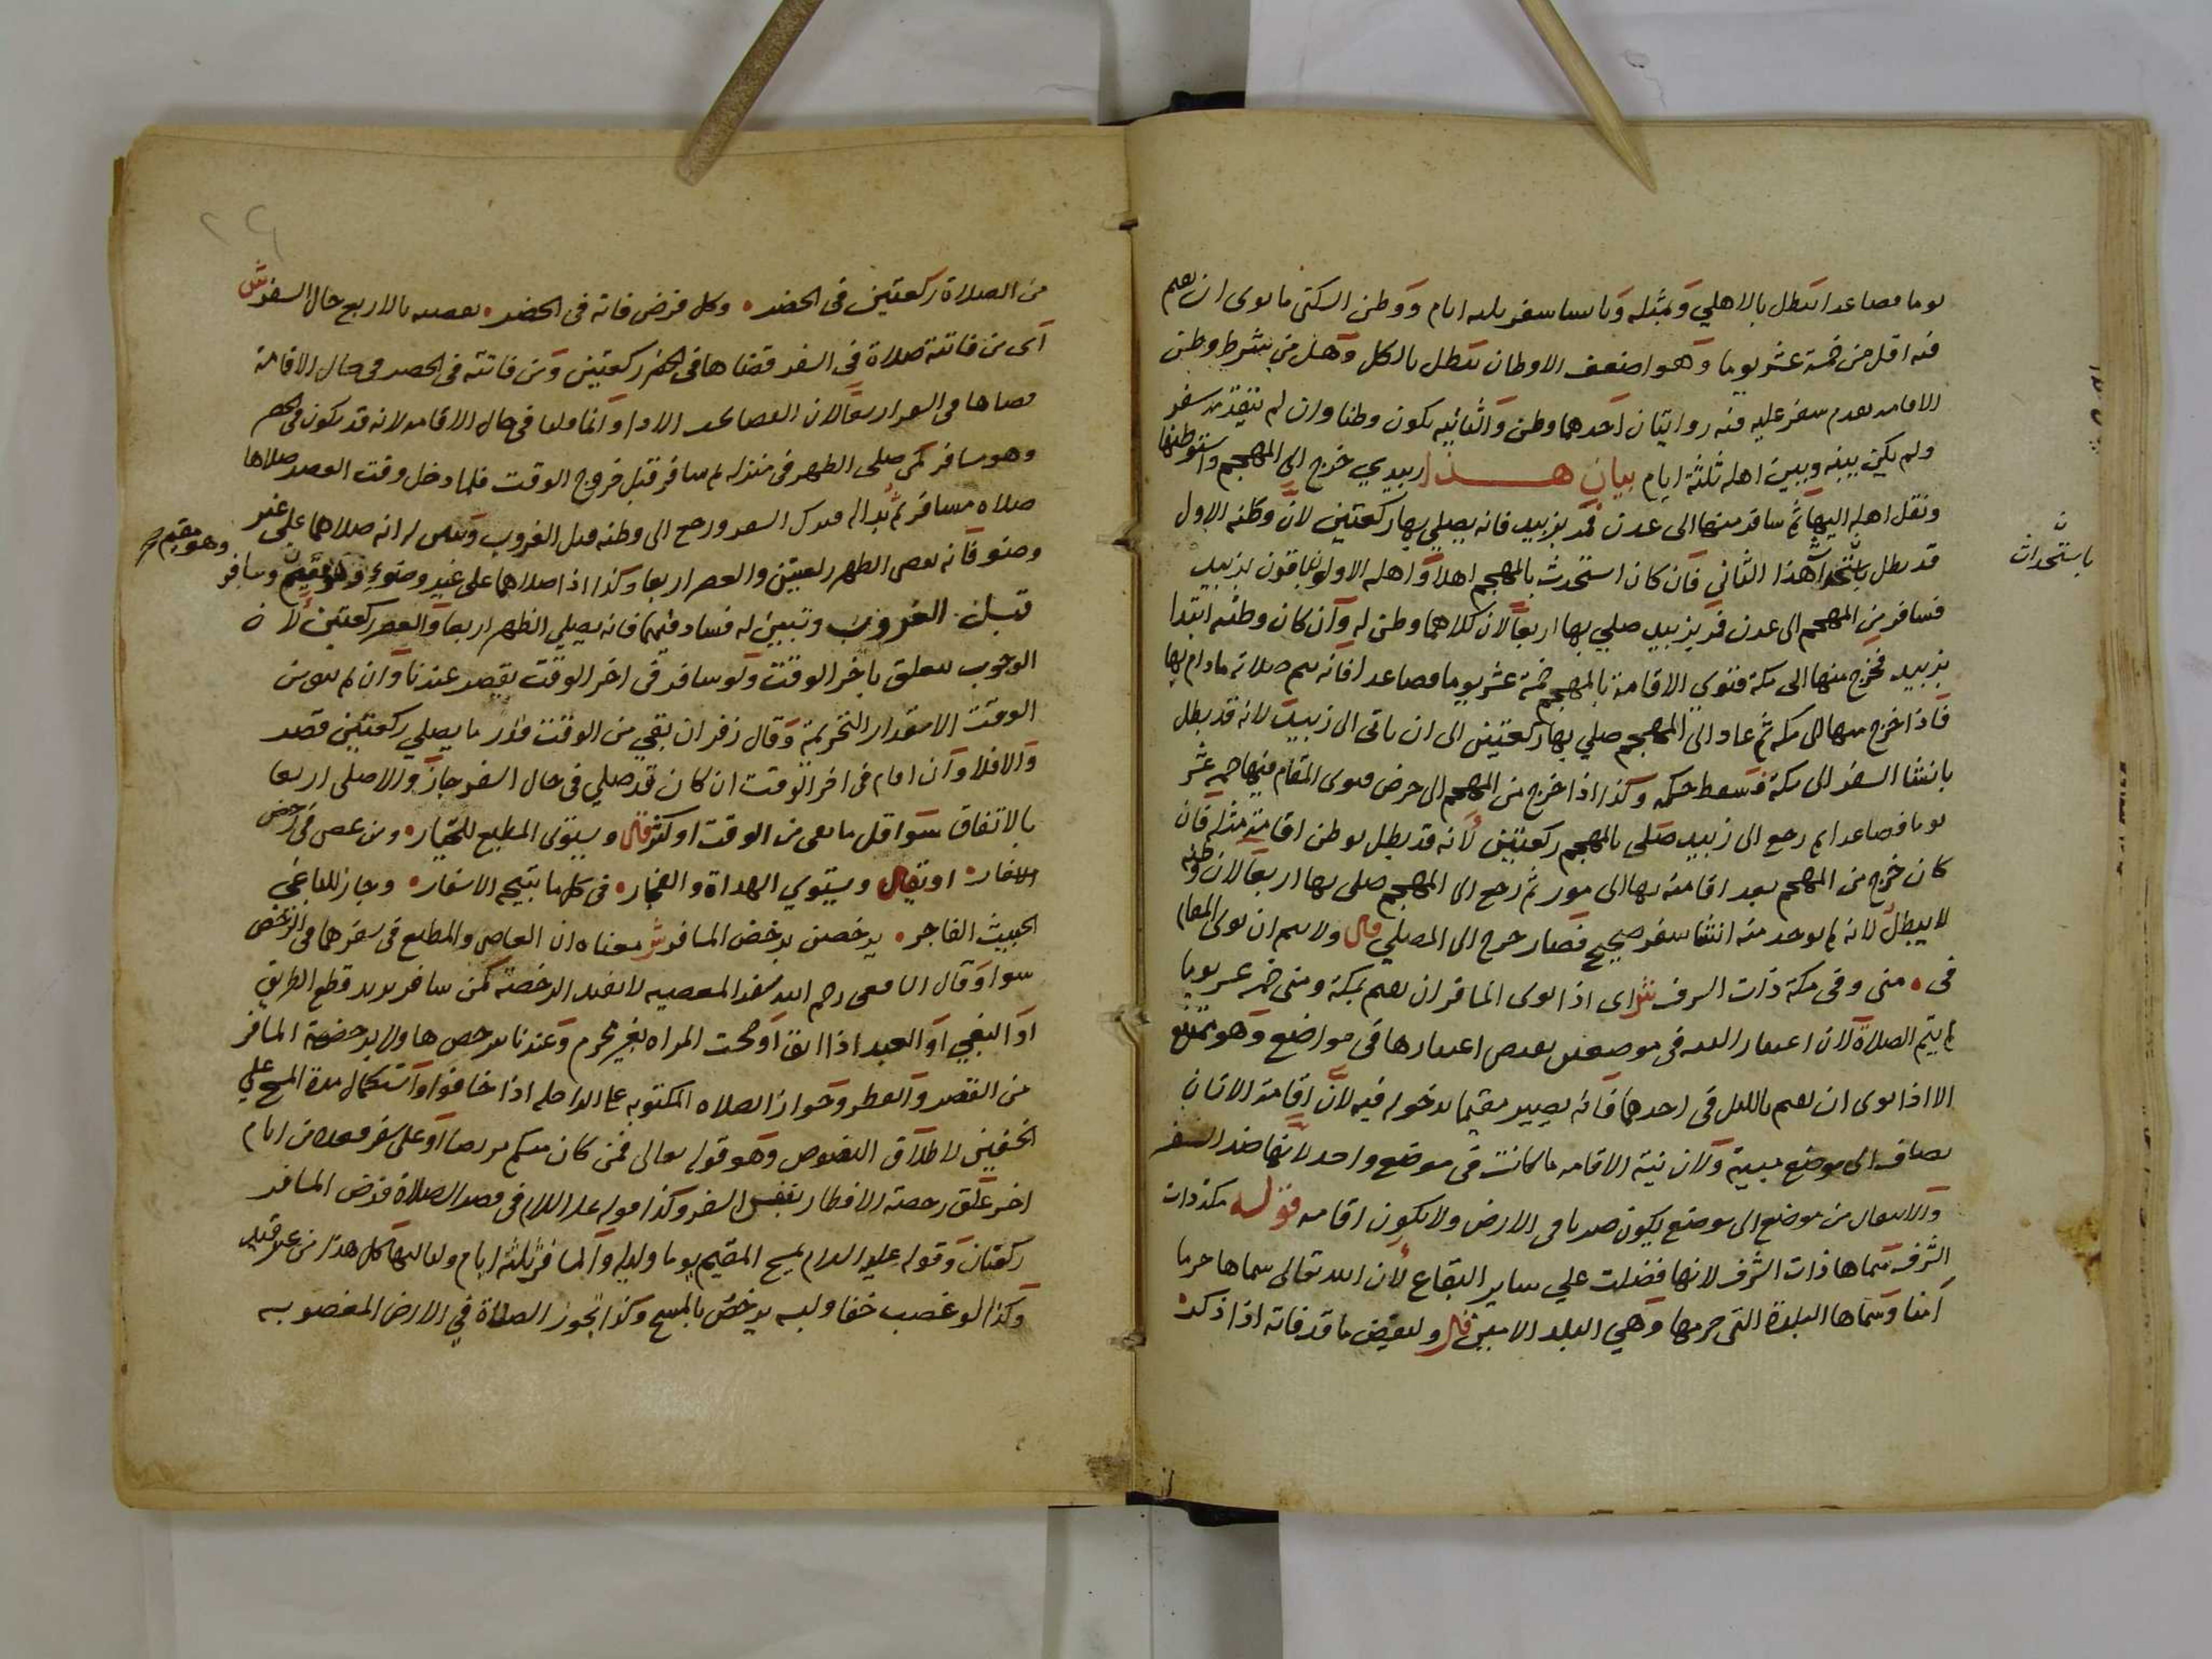 يوما فصاعدا تبطل بالاهلي وبمثله وبانشا سفر ثلثه ايام ووطن السكنى ما نوى ان يقيم
فيه اقل من خمسة عشر يوما وهو اضعف الاوطان تبطل بالكل وهل من شرط وطن
الاقامه تقدم سفر عليه فيه روايتان احدهما وطن والثانيه يكون وطنا وان لم يتقدمه سفر
ولم يكن بينه وبين اهله ثلثة ايام بيان هذا زبيدي خرج الى المهجم واستوطنها
ونقل اهله اليها ثم سافر منها الى عدن فمر بزبيد فانه يصلي بها ركعتين لان وطنه الاول
قد بطل باستحداث هذا الثاني فان كان استحدث بالمهجم اهلا واهله الاولون باقون بزبيد
باستحداث
فسافر من المهجم الى عدن فمر بزبيد صلى بها اربعا لان كلاهما وطن له وان كان وطنه ابتدا
بزبيد فخرج منها الى مكة فنوى الاقامة بالمهجم خمسة عشر يوما فصاعدا فانه يتم صلاته ما دام بها
فاذا خرج منها الى مكه ثم عاد الى المهجم صلى بها ركعتين الى ان ياتى الى زبيد لانه قد بطل
بانشا السفر الى مكة فسقط حكمه وكذا اذا خرج من المهجم الى حرض فنوى المقام فيها خمسة عشر
يوما فصاعدا ثم رجع الى زبيد صلى بالمهجم ركعتين لانه قد بطل بوطن اقامة مثله فان
كان خرج من المهجم بعد اقامته بها الى مور ثم رجع الى المهجم صلى بها اربعا لان وطنه
لا يبطل لانه لم يوجد منه انشا سفر صحيح فصار خرج الى المصلي قال ولا يتم ان نوى المقام
فى منى وفى مكة ذات الشرف ش اى اذا نوى المسافر ان يقيم بمكة ومنى خمسة عشر يوما
لم يتم الصلاة لان اعتبار النيه فى موضعين يقتضى اعتبارها فى مواضع وهو ممتنع
الا اذا نوى ان يقيم بالليل فى احدهما فانه يصير مقيما بدخوله فيه لان اقامة الانسان
تضاف الى موضع مبيته ولان نية الاقامه ما كانت فى موضع واحد لانها ضد السفر
والانتقال من موضع الى موضع يكون ضربا فى الارض ولا يكون اقامه قوله مكة ذات
الشرف سماها ذات الشرف لانها فضلت علي ساير البقاع لان الله تعالى سماها حرما
آمنا وسماها البلدة التى حرمها وهي البلد الامين قال وليقض ما قد فاته اذا ذكر
من الصلاة ركعتين فى الحضر وكل فرض فاته فى الحضر يقضيه بالاربع حال السفر ش
اى من فاتته صلاة فى السفر قضاها فى الحضر ركعتين ومن فاتته فى الحضر فى حال الاقامة
قضاها فى السفر اربعا لان القضا بحسب الادا وانما قلنا فى حال الاقامه لانه قد يكون فى الحضر
وهو مسافر كمن صلى الظهر فى منزله ثم سافر قبل خروج الوقت فلما دخل وقت العصر صلاها
صلاه مسافر ثم بدا له فترك السفر ورجع الى وطنه قبل الغروب وتبين له انه صلاهما على غير
وضو فانه يقضى الظهر ركعتين والعصر اربعا وكذا اذا صلاهما على غير وضوء وهو مقيم وسافر
وهو مقيم صح
قبل الغروب وتبين له فسادهما فانه يصلي الظهر اربعا والعصر ركعتين لان
الوجوب يتعلق باخر الوقت ولو سافر فى اخر الوقت يقصر عندنا وان لم يبق من
الوقت الا مقدار التحريمة وقال زفر ان بقي من الوقت قدر ما يصلي ركعتين قصر
والا فلا وان اقام فى اخر الوقت ان كان قد صلى فى حال السفر جاز والا صلى اربعا
بالاتفاق سوا قل ما بقى من الوقت او كثر قال ويستوى المطيع للجبار ومن عصى فى رخص
الاسفار او يقال ويستوي الهداة والفجار فى كل ما يتيح الاسفار وجاز للباغي
الخبيث الفاجر يرخصن برخص المسافر ش معناه ان العاصى والمطيع فى سفرهما فى الرخص
سوا وقال الشافعى رحمه الله سفر المعصيه لا يفيد الرخصة كمن سافر يريد قطع الطريق
او البغي او العبد اذا ابق او حجت المراه بغير محرم وعندنا يترخص هاولا برخصة المسافر
من القصر والفطر وجواز الصلاه المكتوبه على الراحله اذا خافوا واستكمال مدة المسح علي
الخفين لاطلاق النصوص وهو قوله تعالى فمن كان منكم مريضا او على سفر فعدة من ايام
اخر علق رخصة الافطار بنفس السفر وكذا قوله عليه السلام فى قصر الصلاة فرض المسافر
ركعتان وقوله عليه السلام يمسح المقيم يوما وليله والمسافر ثلثه ايام ولياليها كل هذا من غير
وكذا لو غصب خفا ولبسه يرخص بالمسح وكذا تجوز الصلاة في الارض المغصوبه